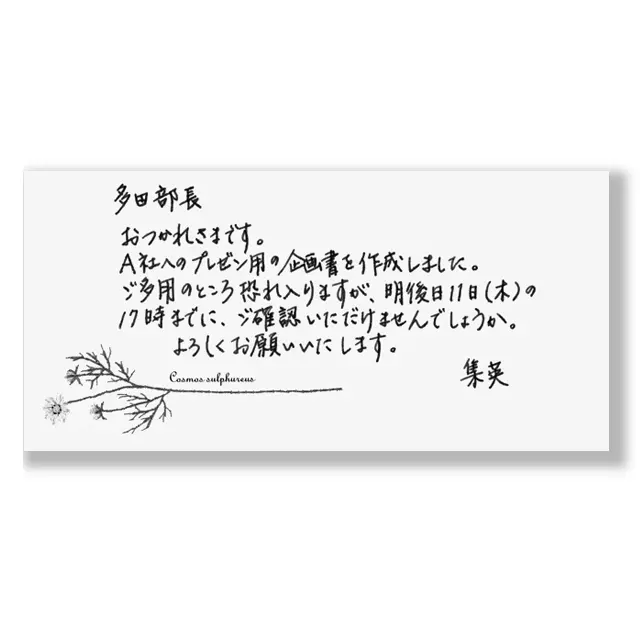 多田部長
おつかれさまです。
A社へのプレゼン用の企画書を作成しました。
ご多用のところ恐れ入りますが、明後日11日(木)の
17時までに、ご確認いただけませんでしょうか。
よろしくお願いいたします。
Cosmos sulphureus
集英